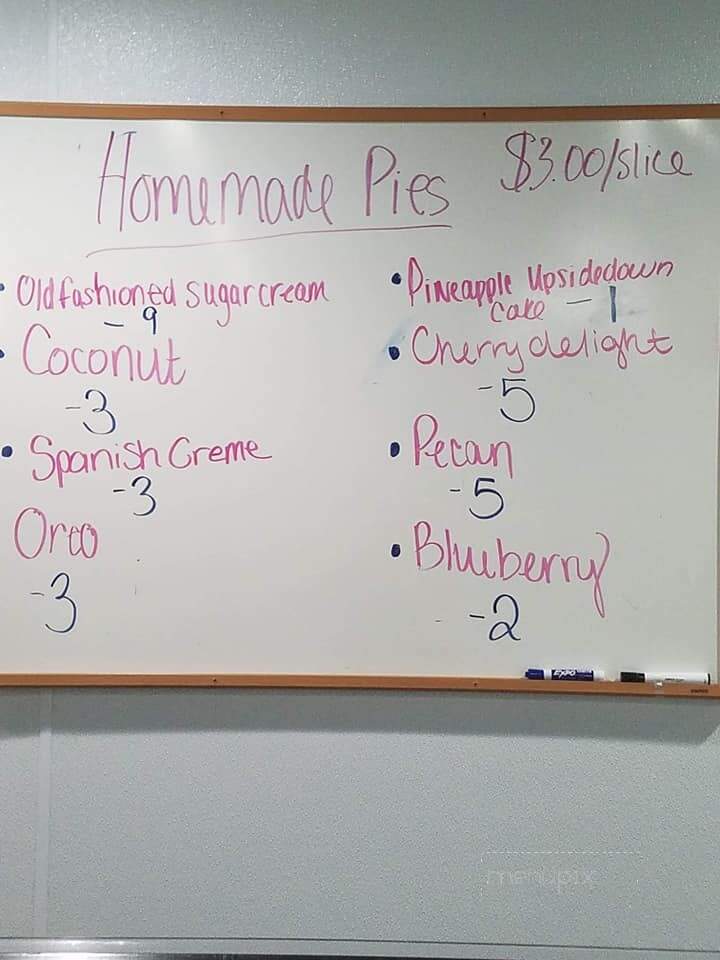 Homemade Pies $3.00/slice
• Old fashioned sugar cream
- 9
• Coconut
- 3
• Spanish Creme
- 3
Oreo
- 3
• Pineapple Upsidedown
cake - 1
• Cherry delight
- 5
• Pecan
- 5
• Blueberry
- 2
EXPO
menupix